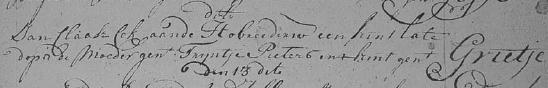 dito
Jan Claasz Ck aande Hobreederw een kint late
dopen de Moeder gent: Tryntje Pieters int kint gent Grietje
den 13 dito